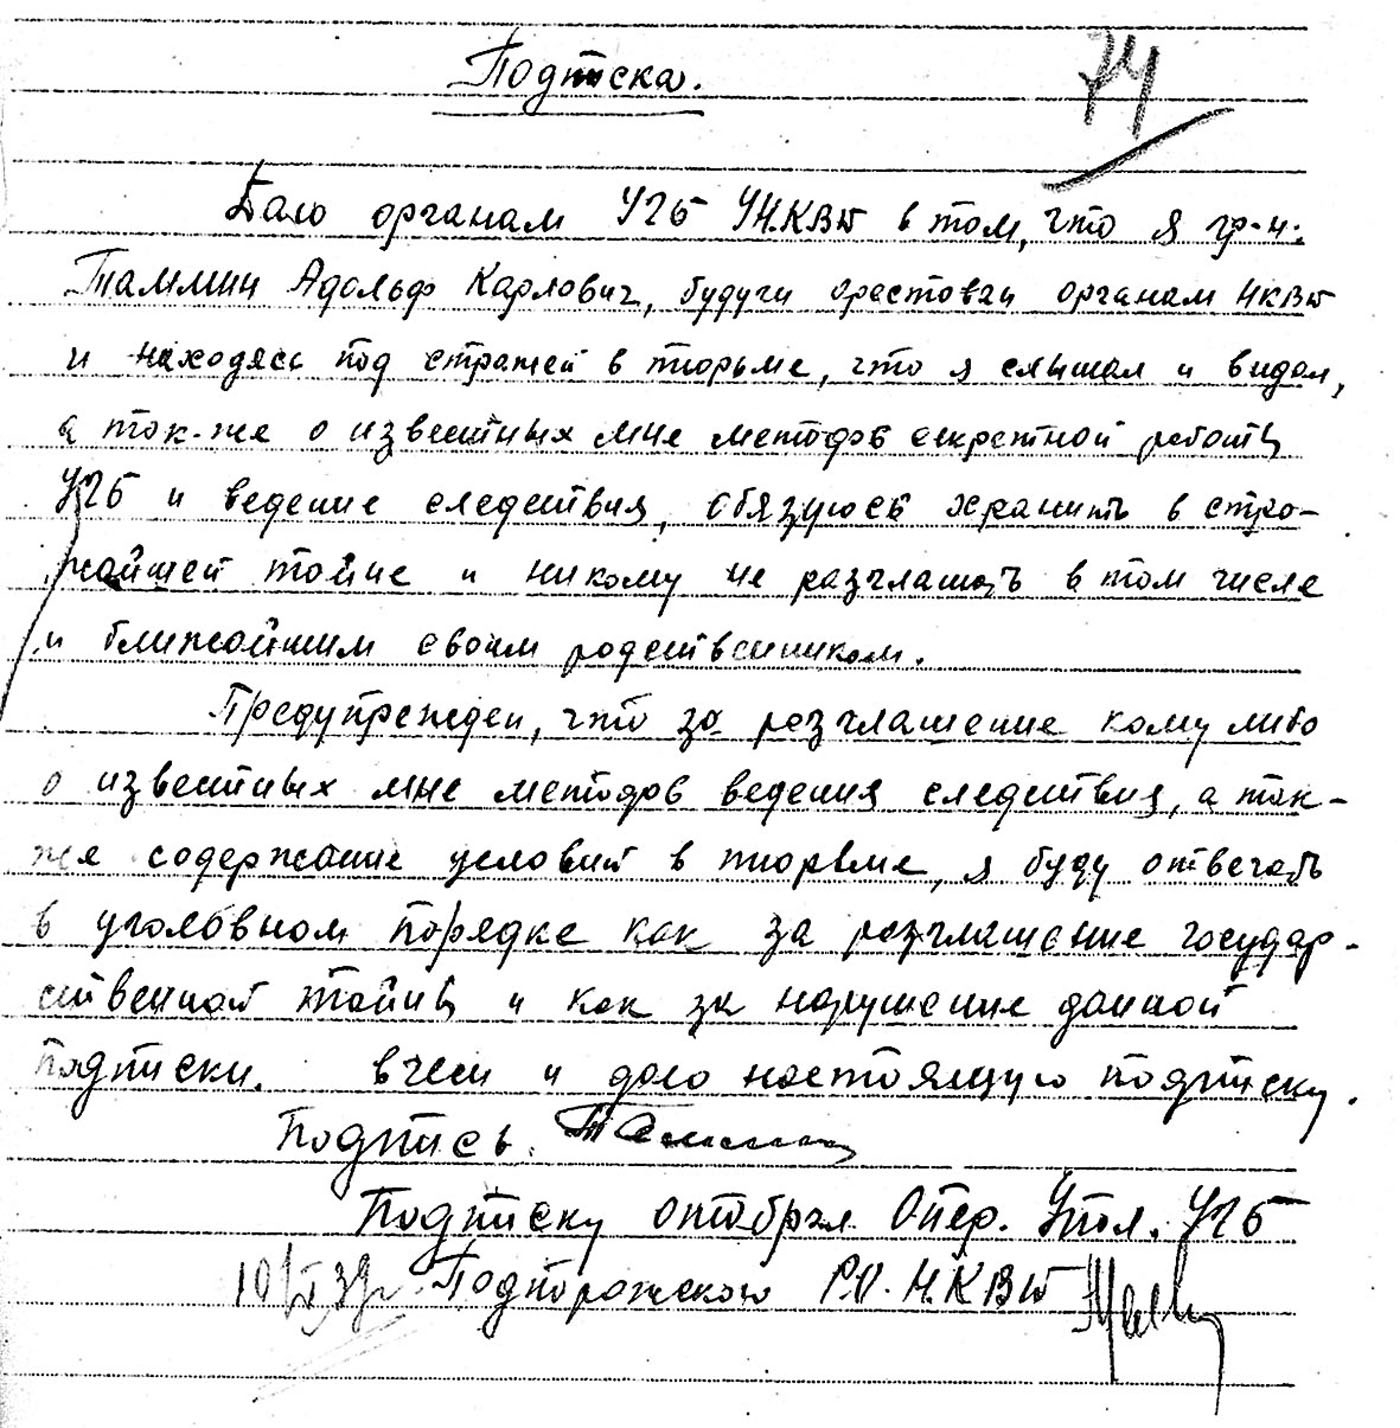 Подписка.
74
Даю органам УГБ УНКВД в том, что я гр-н.
Таммин Адольф Карлович, будучи орестован органам НКВД
и находясь под стражей в тюрьме, что я слышал и видал,
а так-же о известных мне методов секретной работы
УГБ и ведение следствия, обязуюсь хранить в стро-
жайшей тайне и никому не разглашать в том числе
и ближайшим своим родственникам.
Предупрежден, что за разглашение кому либо
о известных мне методов ведения следствия, а так-
же содержание условий в тюрьме, я буду отвечать
в уголовном порядке как за разглашение государ-
ственной тайны и как за нарушение данной
подписки. в чем и даю настоящую подписку.
Подпись. Таммин
Подписку отобрал Опер. Упол. УГБ
Подпорожского Р.О. НКВД